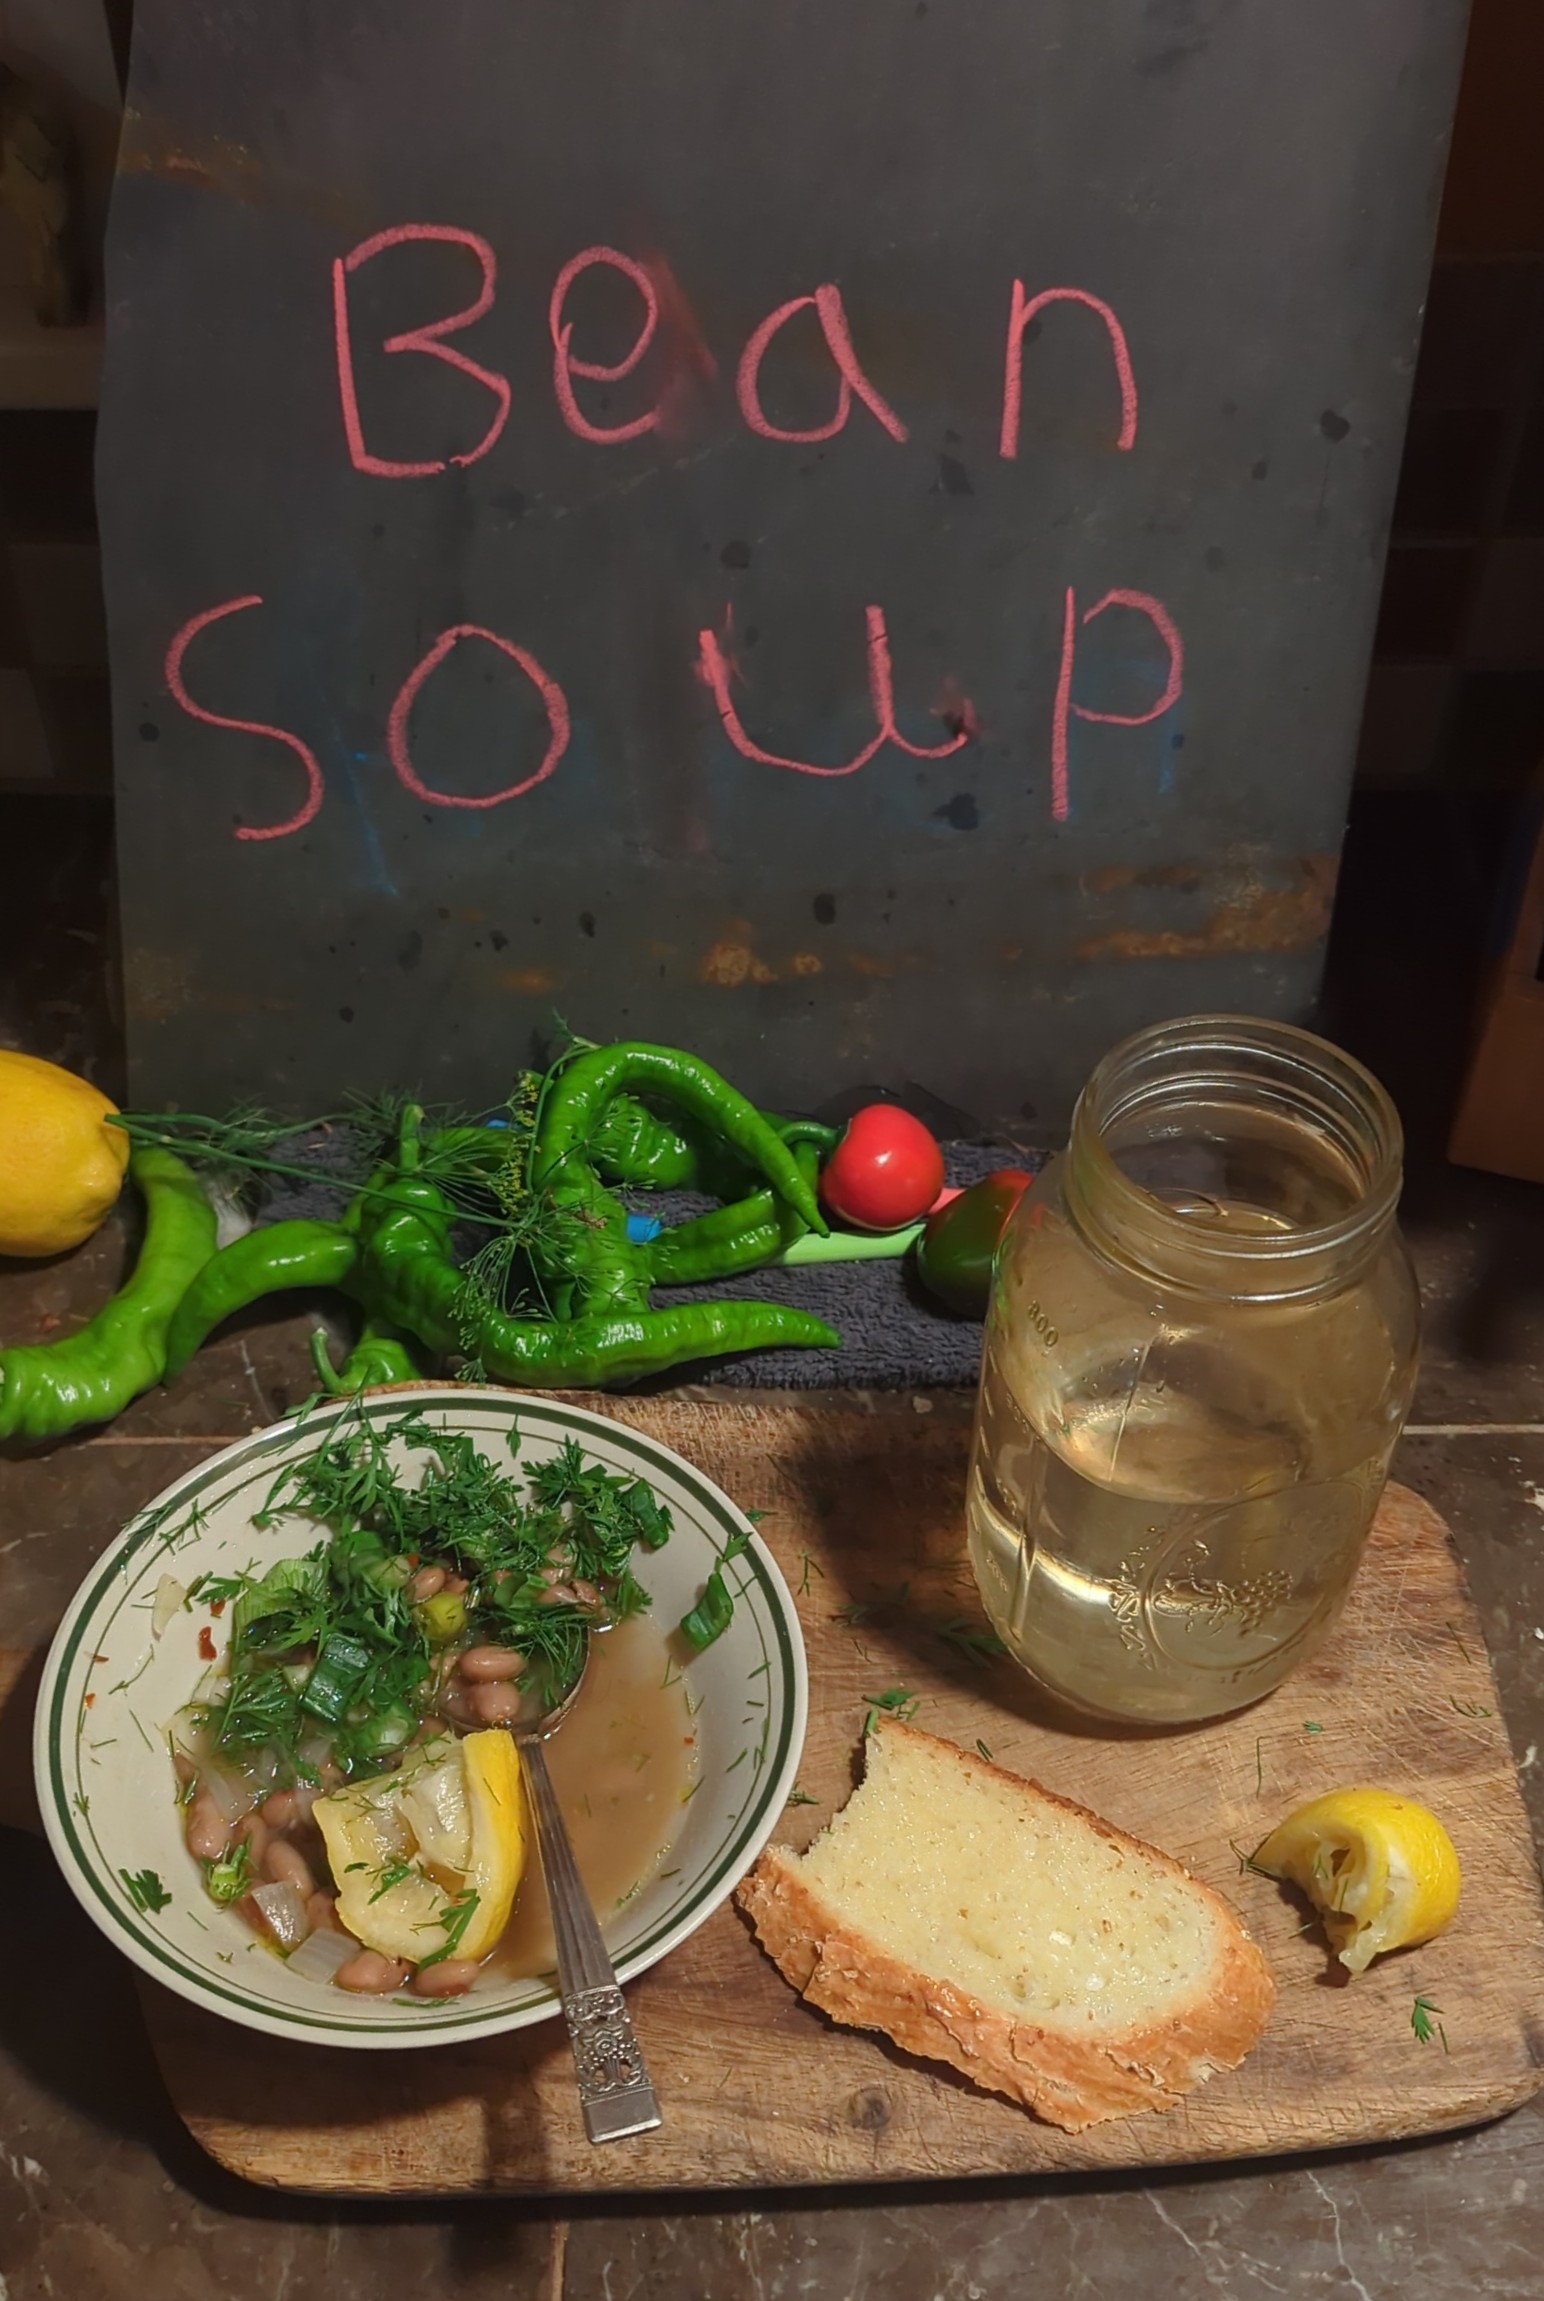 Bean
Soup
800